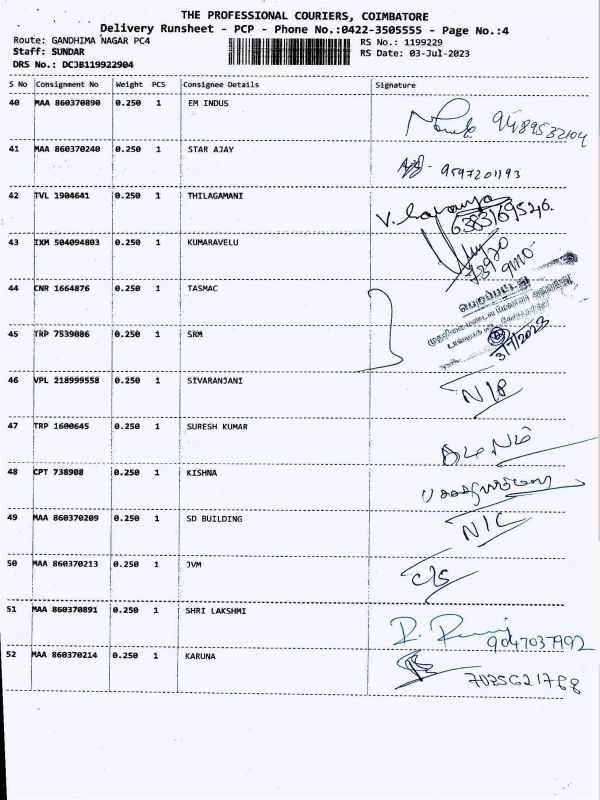 THE PROFESSIONAL COURIERS, COIMBATORE
Delivery Runsheet - PCP - Phone No.:0422-3505555 - Page No.:4
Route: GANDHIMA NAGAR PC4 RS No.: 1199229
Staff: SUNDAR RS Date: 03-Jul-2023
DRS No.: DCJB119922904
S No Consignment No Weight PCS Consignee Details Signature
40 MAA 860370890 0.250 1 EM INDUS 9489532104
41 MAA 860370240 0.250 1 STAR AJAY 9597201193
42 TVL 1904641 0.250 1 THILAGAMANI
6383169526.
43 IXM 504094803 0.250 1 KUMARAVELU
44 CNR 1664876 0.250 1 TASMAC
45 TRP 7539086 0.250 1 SRM
3/7/2023
46 VPL 218999558 0.250 1 SIVARANJANI
47 TRP 1600645 0.250 1 SURESH KUMAR
48 CPT 738908 0.250 1 KISHNA
49 MAA 860370209 0.250 1 SD BUILDING N/C
50 MAA 860370213 0.250 1 JVM C/S
51 MAA 860370891 0.250 1 SHRI LAKSHMI
9047037992
52 MAA 860370214 0.250 1 KARUNA